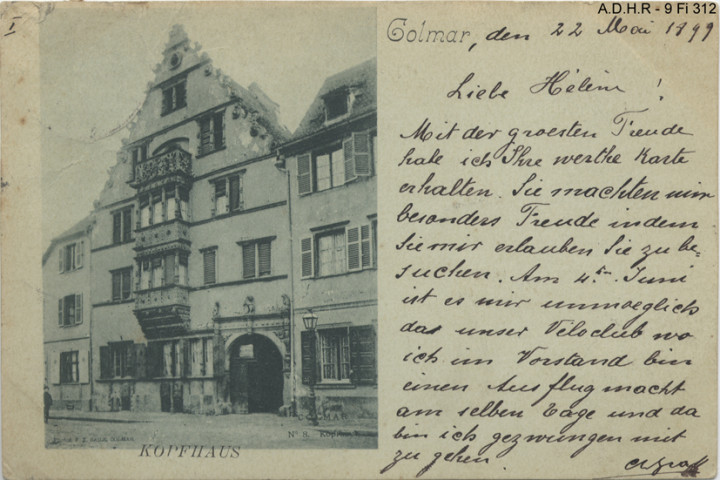 A.D.H.R - 9 Fi 312
I
Colmar, den 22 Mai 1899
Liebe Hélène!
Mit der groesten Freude
habe ich Ihre werthe Karte
erhalten. Sie machten mir
besonders Freude indem
Sie mir erlauben Sie zu be=
suchen. Am 4ten Juni
ist es mir unmoeglich
das unser Veloclub wo
ich im Vorstand bin
einen Ausflug macht
am selben Tage und da
bin ich gezwungen mit
zu gehen.
COLMAR
No 8.
KOPFHAUS